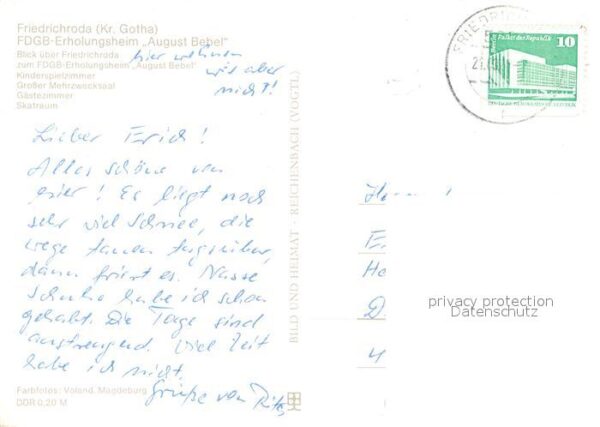 Friedrichroda (Kr. Gotha)
FDGB-Erholungsheim „August Bebel"
Blick über Friedrichroda
zum FDGB-Erholungsheim „August Bebel"
Kinderspielzimmer
Großer Mehrzwecksaal
Gästezimmer
Skatraum
hier wohnen
wir aber
nicht!
Lieber Erich!
Alles schöne von
hier! Es liegt noch
sehr viel Schnee, die
Wege tauen tagsüber,
dann friert es. Nasse
Schuhe habe ich schon
gehabt. Die Tage sind
anstrengend. Viel Zeit
habe ich nicht.
Grüße von
Farbfotos: Voland, Magdeburg
DDR 0,20 M
BILD UND HEIMAT · REICHENBACH (VOGTL)
FRIEDRICH
Palast der Republik
10
privacy protection
Datenschutz